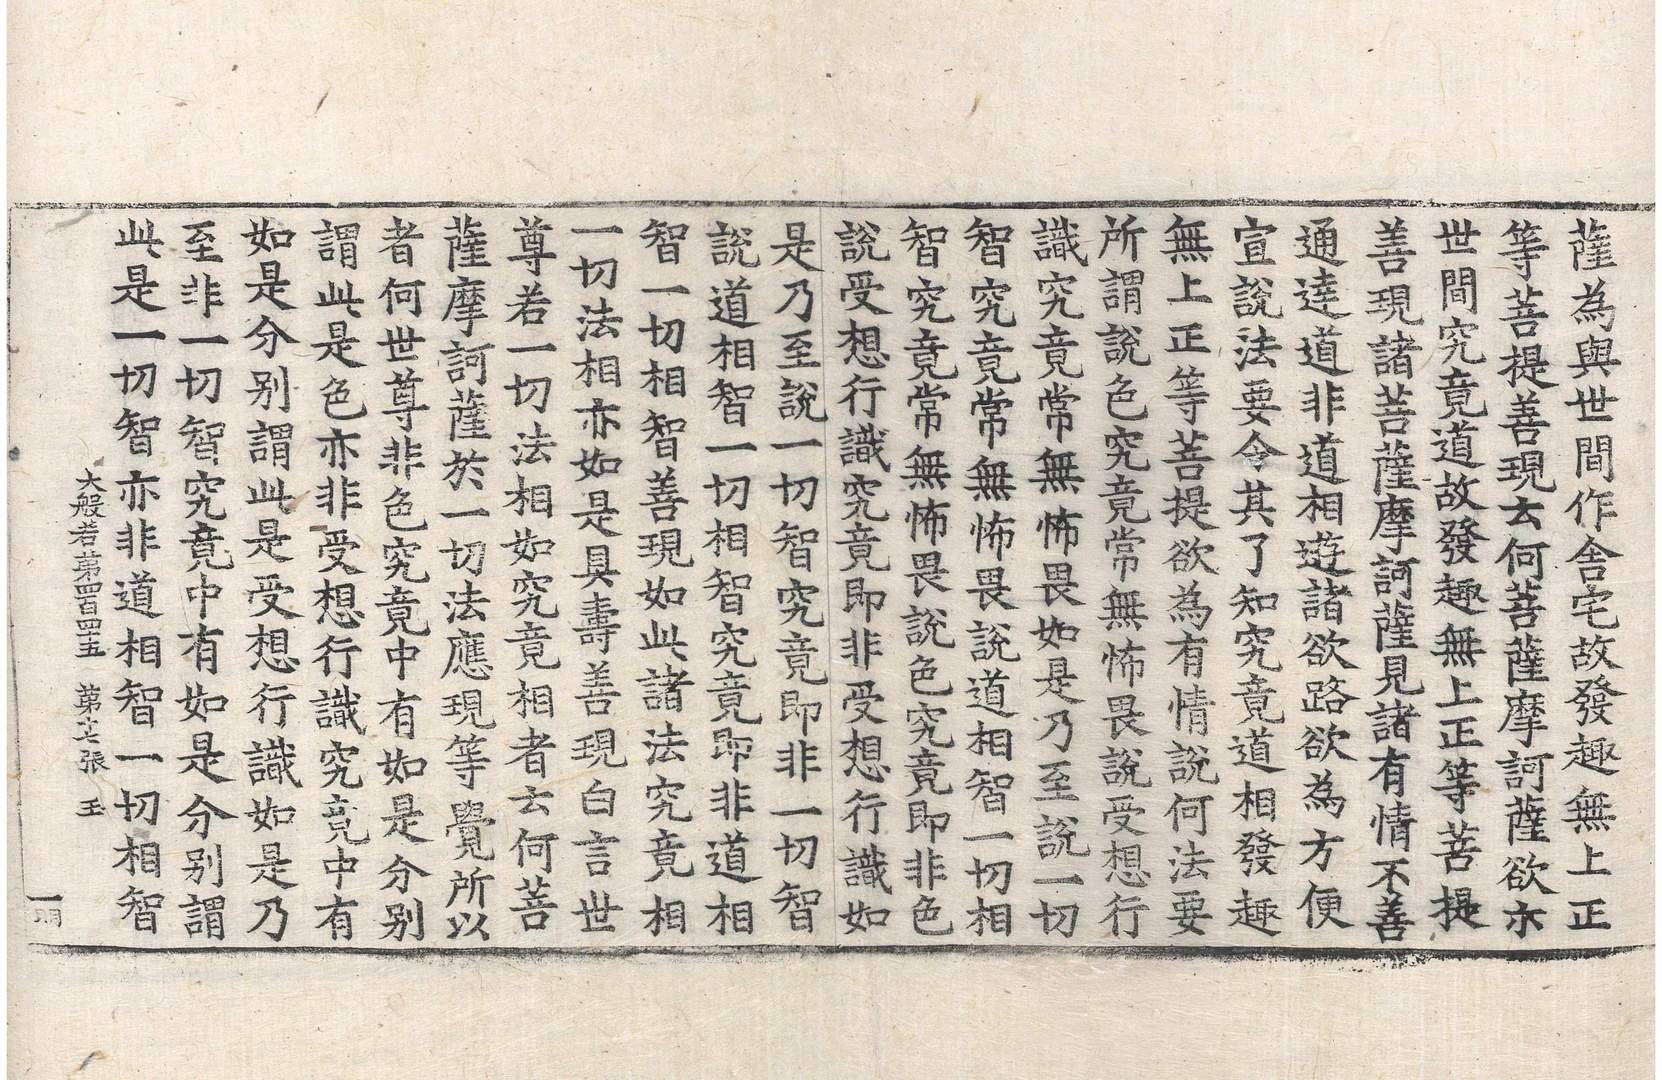 薩為與世間作舍宅故發趣無上正
等菩提善現云何菩薩摩訶薩欲亦
世間究竟道故發趣無上正等菩提
善現諸菩薩摩訶薩見諸有情不善
通達道非道相遊諸欲路欲為方便
宣說法要令其了知究竟道相發趣
無上正等菩提欲為有情說何法要
所謂說色究竟常無怖畏說受想行
識究竟常無怖畏如是乃至說一切
智究竟常無怖畏說道相智一切相
智究竟常無怖畏說色究竟即非色
說受想行識究竟即非受想行識如
是乃至說一切智究竟即非一切智
說道相智一切相智究竟即非道相
智一切相智善現如此諸法究竟相
一切法相亦如是具壽善現白言世
尊若一切法相如究竟相者云何菩
薩摩訶薩於一切法應現等覺所以
者何世尊非色究竟中有如是分別
謂此是色亦非受想行識究竟中有
如是分別謂此是受想行識如是乃
至非一切智究竟中有如是分別謂
此是一切智亦非道相智一切相智
大般若第四百四十五 第十七張 玉